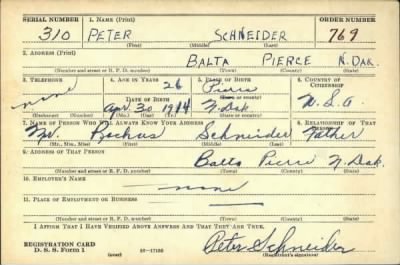 SERIAL NUMBER 1. NAME (Print) ORDER NUMBER
310 PETER SCHNEIDER 769
(First) (Middle) (Last)
2. ADDRESS (Print)
BALTA PIERCE N. DAK.
(Number and street or R. F. D. number) (Town) (County) (State)
3. TELEPHONE 4. AGE IN YEARS 5. PLACE OF BIRTH 6. COUNTRY OF CITIZENSHIP
none 26 Pierce
DATE OF BIRTH (Town or county)
Apr 30 1914 N. Dak U. S. A.
(Exchange) (No.) (Mo.) (Day) (Yr.) (State or country)
7. NAME OF PERSON WHO WILL ALWAYS KNOW YOUR ADDRESS 8. RELATIONSHIP OF THAT PERSON
Mr. Rochus Schneider Father
(Mr., Mrs., Miss) (First) (Middle) (Last)
9. ADDRESS OF THAT PERSON
Balta Pierce N. Dak.
(Number and street or R. F. D. number) (Town) (County) (State)
10. EMPLOYER'S NAME
none
11. PLACE OF EMPLOYMENT OR BUSINESS
(Number and street or R. F. D. number) (Town) (County) (State)
I AFFIRM THAT I HAVE VERIFIED ABOVE ANSWERS AND THAT THEY ARE TRUE.
REGISTRATION CARD
D. S. S. Form 1 (over) Peter Schneider
(Registrant's signature)